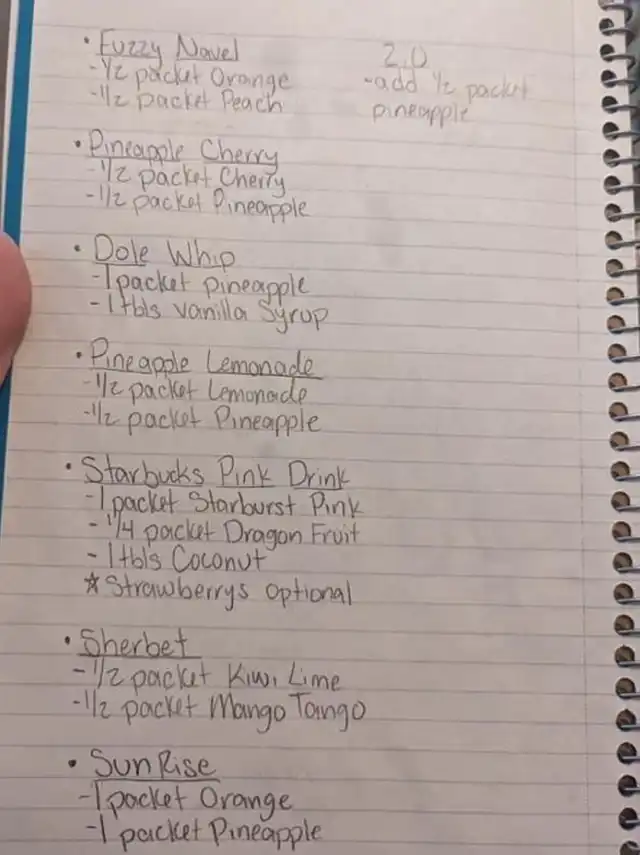 • Fuzzy Navel
- 1/2 packet Orange
- 1/2 packet Peach
2.0
- add 1/2 packet
pineapple
• Pineapple Cherry
- 1/2 packet Cherry
- 1/2 packet Pineapple
• Dole Whip
- 1 packet pineapple
- 1 tbls vanilla Syrup
• Pineapple Lemonade
- 1/2 packet Lemonade
- 1/2 packet Pineapple
• Starbucks Pink Drink
- 1 packet Starburst Pink
- 1/4 packet Dragon Fruit
- 1 tbls Coconut
☆ Strawberrys optional
• Sherbet
- 1/2 packet Kiwi Lime
- 1/2 packet Mango Tango
• SunRise
- 1 packet Orange
- 1 packet Pineapple